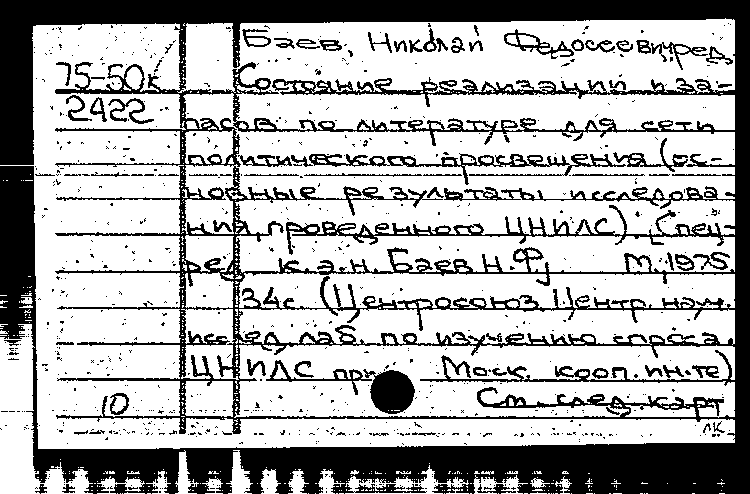 Баев, Николай Федосеевич, ред.
75-50к Состояние реализации и за-
2422
пасов по литературе для сети
политического просвещения (ос-
новные результаты исследова-
ния, проведенного ЦНИЛС).
ред. к.э.н. Баев Н.Ф.] М., 1975.
34с (Центросоюз. Центр. науч.
исслед. лаб. по изучению спроса.
ЦНИЛС при Моск. кооп. ин-те)
10 См. след. карт.